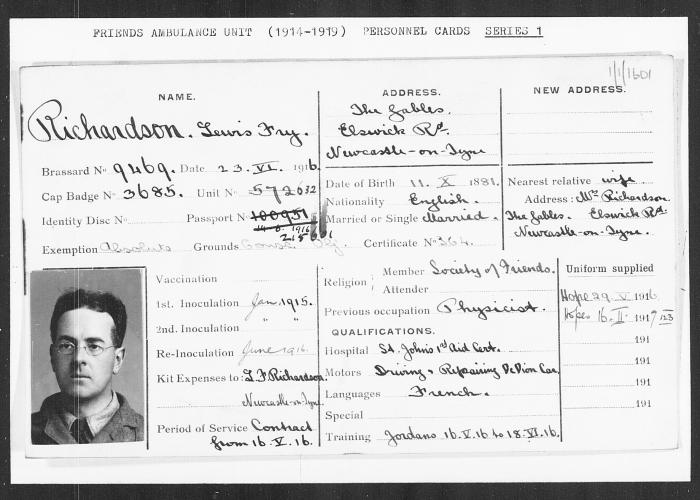 FRIENDS AMBULANCE UNIT (1914-1919) PERSONNEL CARDS SERIES 1
1/1/1601
NAME.
Richardson. Lewis Fry.
Brassard No 9469. Date 23. VI. 1916.
Cap Badge No 3685. Unit No 572
Identity Disc No Passport No 100951
14.6.1916
Exemption Absolute Grounds Consc. Obj. Certificate No 364.
ADDRESS.
The Gables.
Elswick Rd.
Newcastle-on-Tyne
Date of Birth 11. X 1881.
Nationality English.
Married or Single Married.
NEW ADDRESS.
Nearest relative wife
Address: Mrs Richardson.
The Gables. Elswick Rd.
Newcastle-on-Tyne.
Vaccination
1st. Inoculation Jan. 1915.
2nd. Inoculation " "
Re-Inoculation June 1916.
Kit Expenses to: L F Richardson.
Newcastle-on-Tyne.
Period of Service Contract
from 16. V. 16.
Religion; Member Society of Friends.
Attender
Previous occupation Physicist.
QUALIFICATIONS.
Hospital St. John's 1st Aid Cert.
Motors Driving & Repairing De Dion Car.
Languages French.
Special
Training Jordans 16. V. 16 to 18. VI. 16.
Uniform supplied
Hope 29. V 1916
16. II. 1917
191
191
191
191